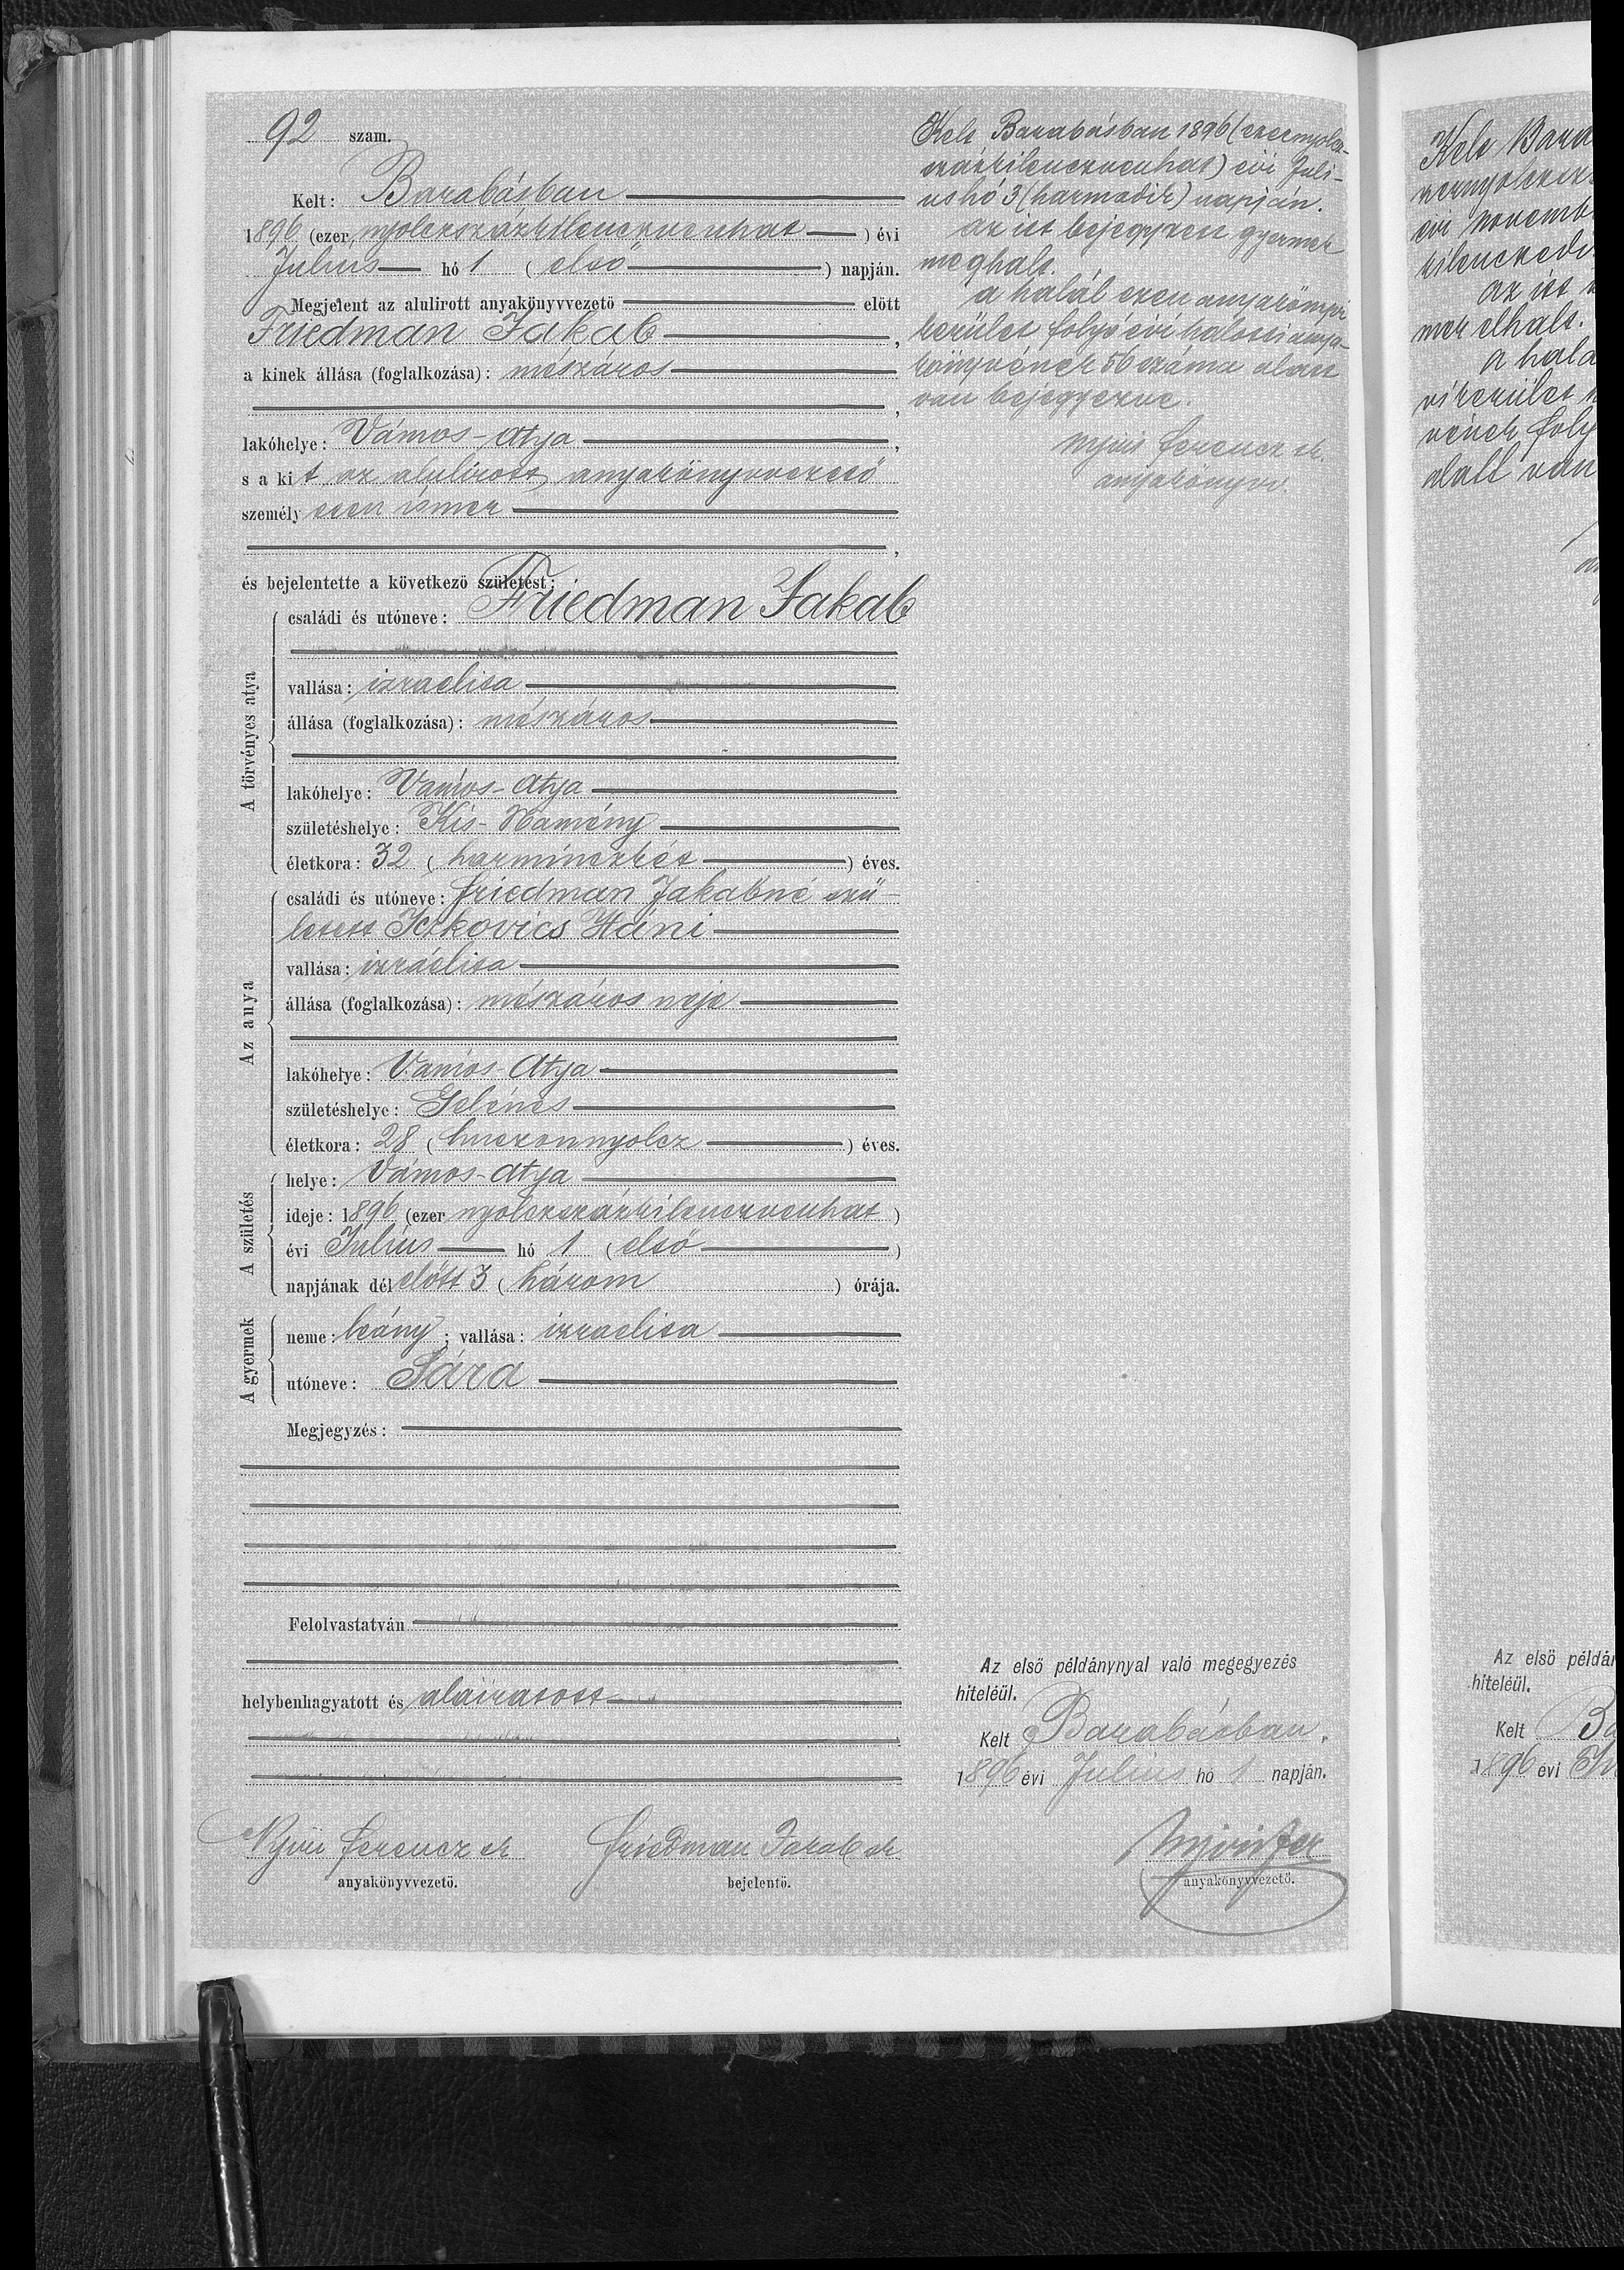 92 szám.
Kelt: Barabásban
1896 (ezer nyolczszázkilenczvenhat) évi
Julius hó 1 (első) napján.
Megjelent az alulirott anyakönyvvezető előtt
Friedman Jakab,
a kinek állása (foglalkozása): mészáros
,
lakóhelye: Vámos-Atya,
s a kit az alulirott anyakönyvvezető
személyesen ismer
,
és bejelentette a következő születést:
A törvényes atya
családi és utóneve: Friedman Jakab
vallása: izraelita
állása (foglalkozása): mészáros
lakóhelye: Vámos-Atya
születéshelye: Kis-Namény
életkora: 32 (harminczkét) éves.
Az anya
családi és utóneve: Friedman Jakabné szü-
letett Iczkovics Háni
vallása: izráelita
állása (foglalkozása): mészáros neje
lakóhelye: Vámos-Atya
születéshelye: Gelénes
életkora: 28 (huszonnyolcz) éves.
A születés
helye: Vámos-Atya
ideje: 1896 (ezer nyolczszázkilenczvenhat)
évi Július hó 1 (első)
napjának délelőtt 3 (három) órája.
A gyermek
neme: leány; vallása: izraelita
utóneve: Sára
Megjegyzés:
Felolvastatván
helybenhagyatott és aláiratott
Nyiri Ferencz sk
anyakönyvvezető.
Friedman Jakab sk
bejelentő.
Kelt Barabásban 1896 (ezernyolcz-
százkilenczvenhat) évi Juli-
us hó 3 (harmadik) napján.
az itt bejegyzett gyermek
meghalt.
a halál ezen anyakönyvi
kerület folyó évi halotti anya-
könyvének 56 száma alatt
van bejegyezve.
Nyiri Ferencz sk.
anyakönyvv.
Az első példánynyal való megegyezés
hiteléül.
Kelt Barabásban.
1896 évi Julius hó 1 napján.
Nyiri Fer
anyakönyvvezető.
Kelt Bara
zernyolczsz
évi novemb
kilenczedi
az itt
mek elhalt.
a halá
vi kerület
vének foly
alatt van
Az első példán
hiteléül.
Kelt Ba
1896 évi